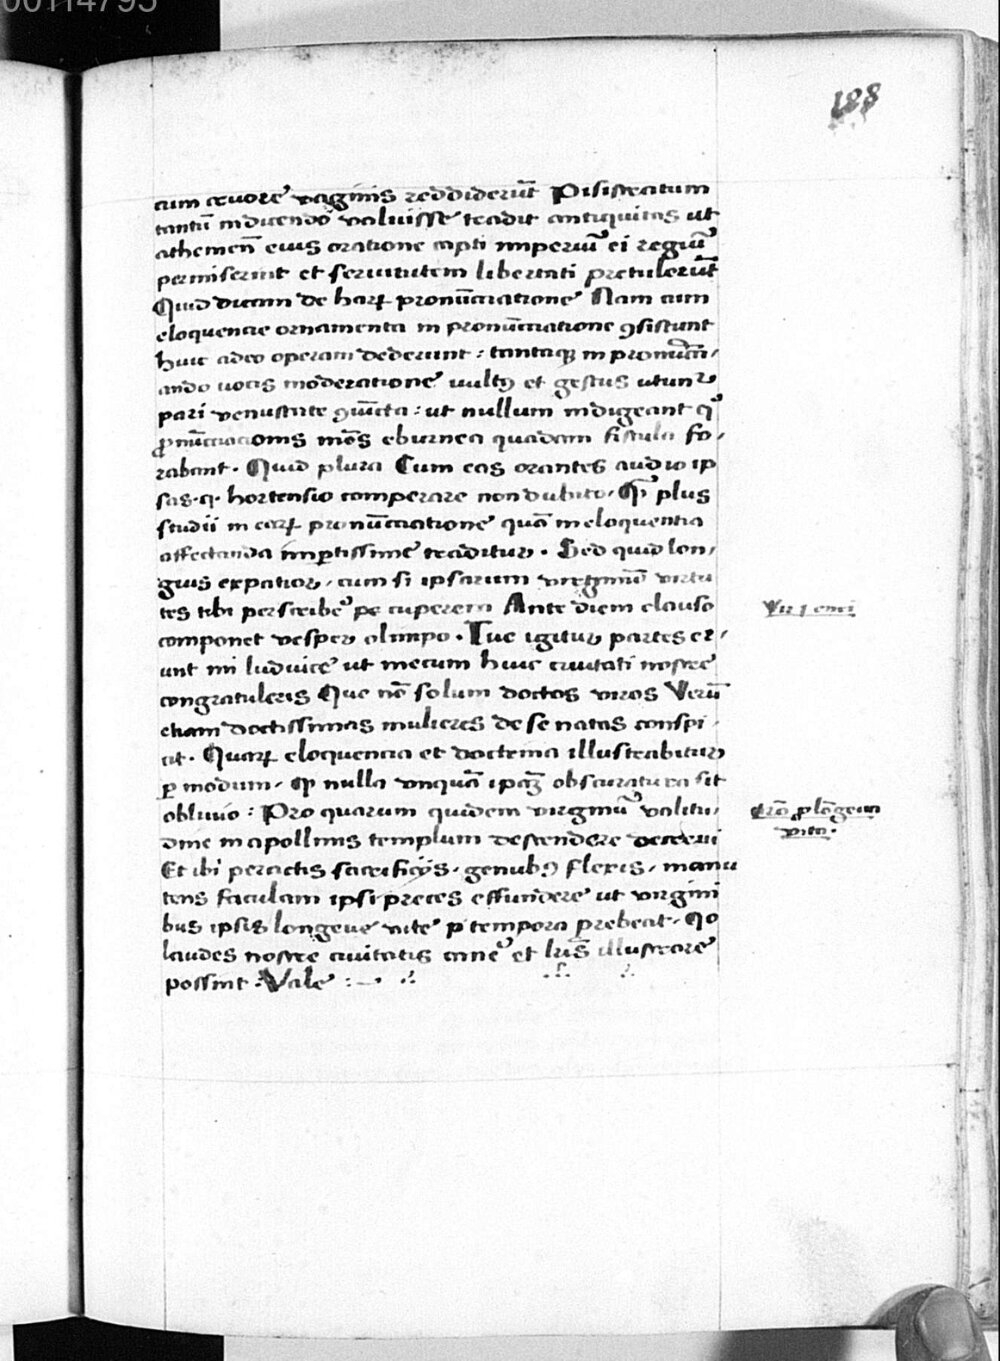 00114795
188
cum cruore vaginis reddiderūt Pisistratum
tantū in dicendo valuisse tradit antiquitas ut
athenien̄ eius oratione capti imperiū ei regiū
permiserint et seruitutem libertati pretulerūt
Quid dicam de harꝝ pronūciatione Nam cum
eloquencie ornamenta in pronūciatione ꝯsistunt
huic adeo operam dederunt : tantaqꝫ in pronūci,
ando uocis moderatione vultꝰ et gestus utunᷣ
pari venustate ꝯiūcta : ut nullum indigeant
pronūciacionis eburnea quadam fistula fo,
rabant . Quid plura Cum eas orantes audio ip
sas .q. hortensio comperare non dubito . plus
studii in earꝝ pronūciatione quā in eloquentia
affectanda traditur . Sed quid lon,
gius expatior, cum si ipsarum virginū virtu
tes tibi cuperem Ante diem clauso
componet vesper olimpo . Tue igitur partes er,
unt mi luduice ut mecum huic ciuitati nostre
congratuleris Que nō solum doctos viros Verū
etiam doctissimas mulieres de se natas conspi ,
cit . Quarꝝ eloquencia et doctrina illustrabitur
ꝑ modum . nulla vnquā obscuratura sit
obliuio : Pro quarum quidem virginū valitu,
dine in apollinis templum descendere decreui
Et ibi peractis sacrificijs . genubꝰ flexis, manu
tens faculam ipsi preces effundere ut virgini
bus ipsis longeue vite tempora prebeat . Qo
laudes nostre ciuitatis et lrīs illustrare
possint : Vale :
Virgenei
Orō ꝓ lōgeua
vita .